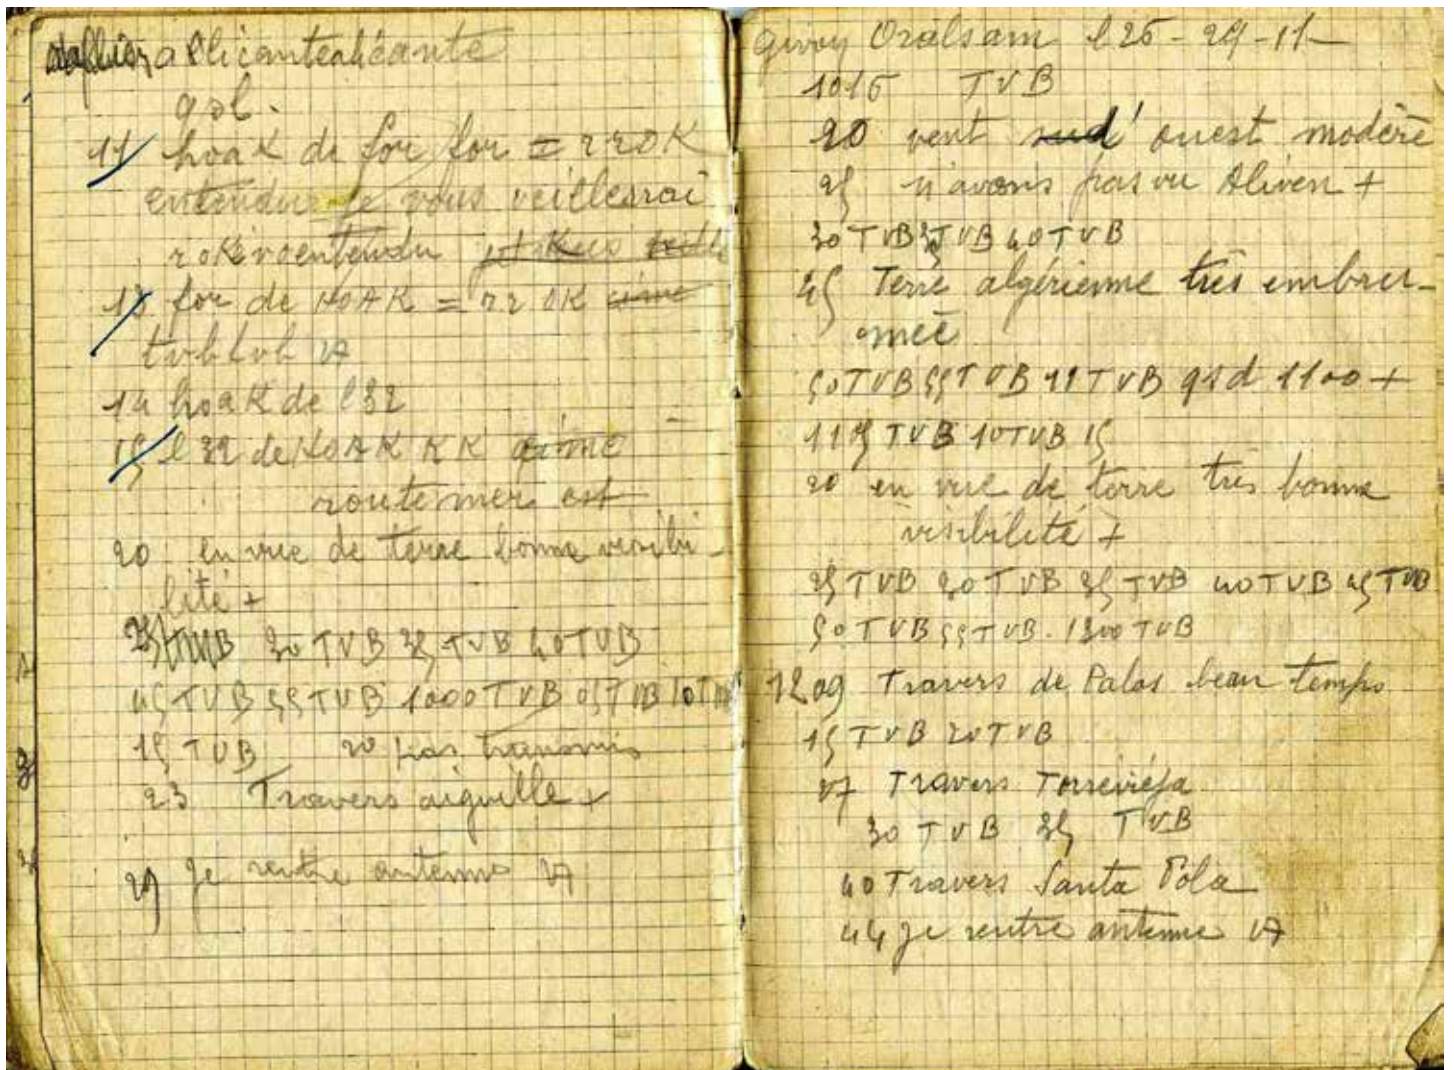 a Alicante alicante
qsl.
11 hoak de for for = r r OK
entendu je vous veillerai
r ok r entendu
13 for de HOAK = r r OK
tvb tvb VA
14 hoak de l32
15 l32 de HOAK KK
route mer est
20 en vue de terre bonne visibi-
lité +
25 TVB 30 TVB 35 TVB 40 TVB
45 TVB 55 TVB 1000 TVB 05 TVB 10 TVB
15 TVB 20 pas transmis
23 Travers aiguille +
29 je rentre antenne VA
Oralsam l26 - 29-11-
1015 TVB
20 vent sud d'ouest modéré
25 n'avons pas vu Aliven +
30 TVB 35 TVB 40 TVB
45 Terre algérienne très embru-
meé
50 TVB 55 TVB 11 TVB qsd 1100 +
1105 TVB 10 TVB 15
20 en vue de terre très bonne
visibilité +
25 TVB 30 TVB 35 TVB 40 TVB 45 TVB
50 TVB 55 TVB. 1200 TVB
1209 Travers de Palos beau temps
15 TVB 20 TVB
27 Travers Torrevieja
30 TVB 35 TVB
40 Travers Santa Pola
44 je rentre antenne VA